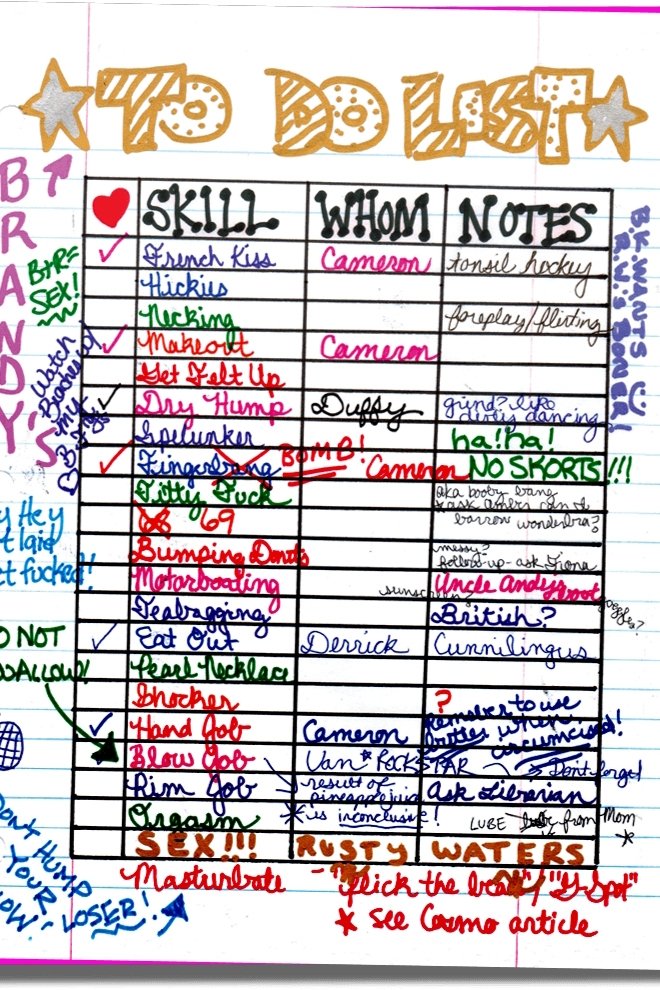 TO DO LIST
BRANDY'S
♥ SKILL WHOM NOTES
✓ French Kiss Cameron tonsil hockey
Hickies
Necking foreplay/flirting
✓ Makeout Cameron
Get Felt Up
✓ Dry Hump Duffy grind? like dirty dancing
Spelunker ha! ha!
✓ Fingerbang BOMB! Cameron NO SKORTS!!!
Titty Fuck aka booby bang
*ask Amber can I
borrow wonderbra?
68 69
Bumping Donuts messy?
follow-up - ask Fiona
Motorboating sunscreen? Uncle Andy's boat goggles?
Teabagging British?
✓ Eat Out Derrick Cunnilingus
Pearl Necklace
Shocker ?
✓ Hand Job Cameron Remember to use
butter when
circumcised!
Blow Job Van * ROCKSTAR Don't forget
Rim Job result of
pineapple juice Ask Librarian
Orgasm * is inconclusive! LUBE from Mom *
SEX!!! RUSTY WATERS
Masturbate - "flick the bean", "G-Spot"
* see Cosmo article
BARE
SEX!
Watch
Beaches w/
my
B.F.'s
Hey
laid
fucked!!
NOT
DON'T HUMP
YOUR
LOSER!
B.K. WANTS
R.W.'S BONER!